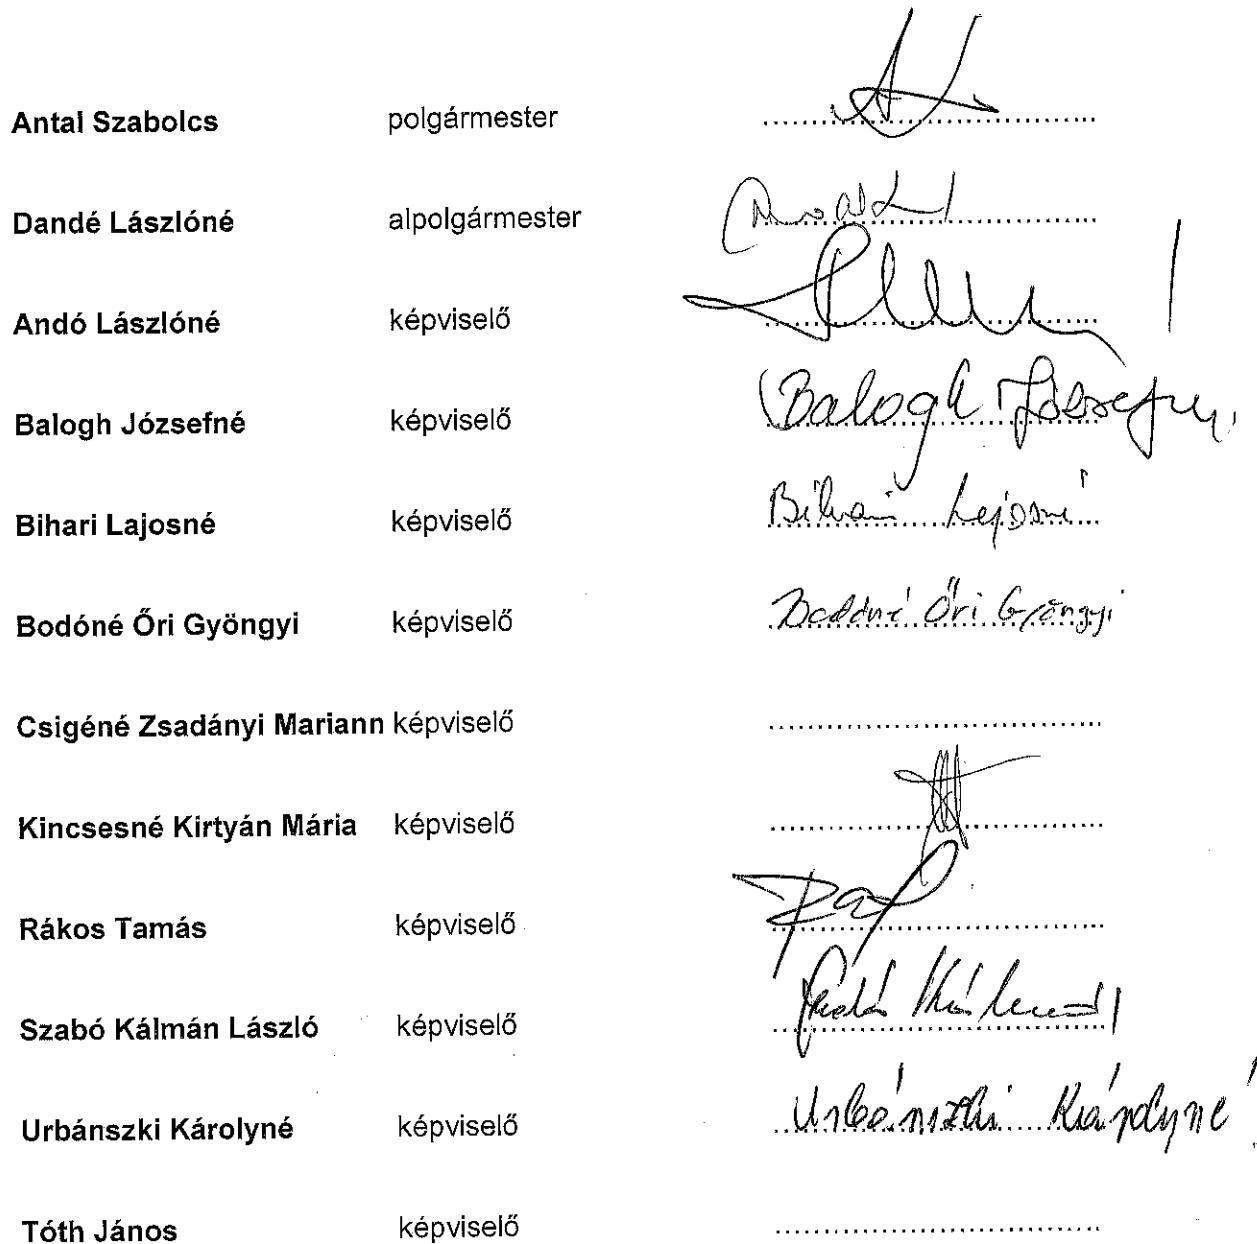 Antal Szabolcs polgármester ........................................
Dandé Lászlóné alpolgármester ........................................
Andó Lászlóné képviselő ........................................
Balogh Józsefné képviselő Balogh Józsefné
Bihari Lajosné képviselő Bihari Lajosné
Bodóné Őri Gyöngyi képviselő Bodóné Őri Gyöngyi
Csigéné Zsadányi Mariann képviselő ........................................
Kincsesné Kirtyán Mária képviselő ........................................
Rákos Tamás képviselő ........................................
Szabó Kálmán László képviselő ........................................
Urbánszki Károlyné képviselő Urbánszki Károlyné
Tóth János képviselő ........................................